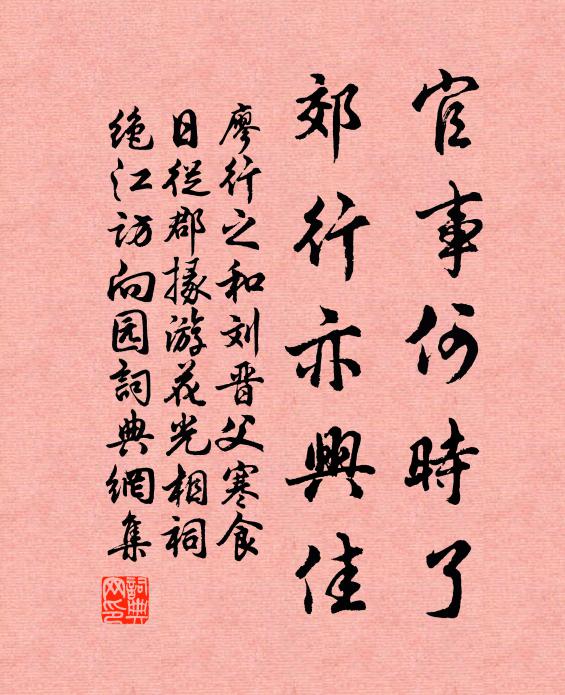 官事何時了
郊行亦興佳
廖行之和刘晋父寒食
日從郡掾游花光相祠
絶江访向园詞典網集
詞典
网印